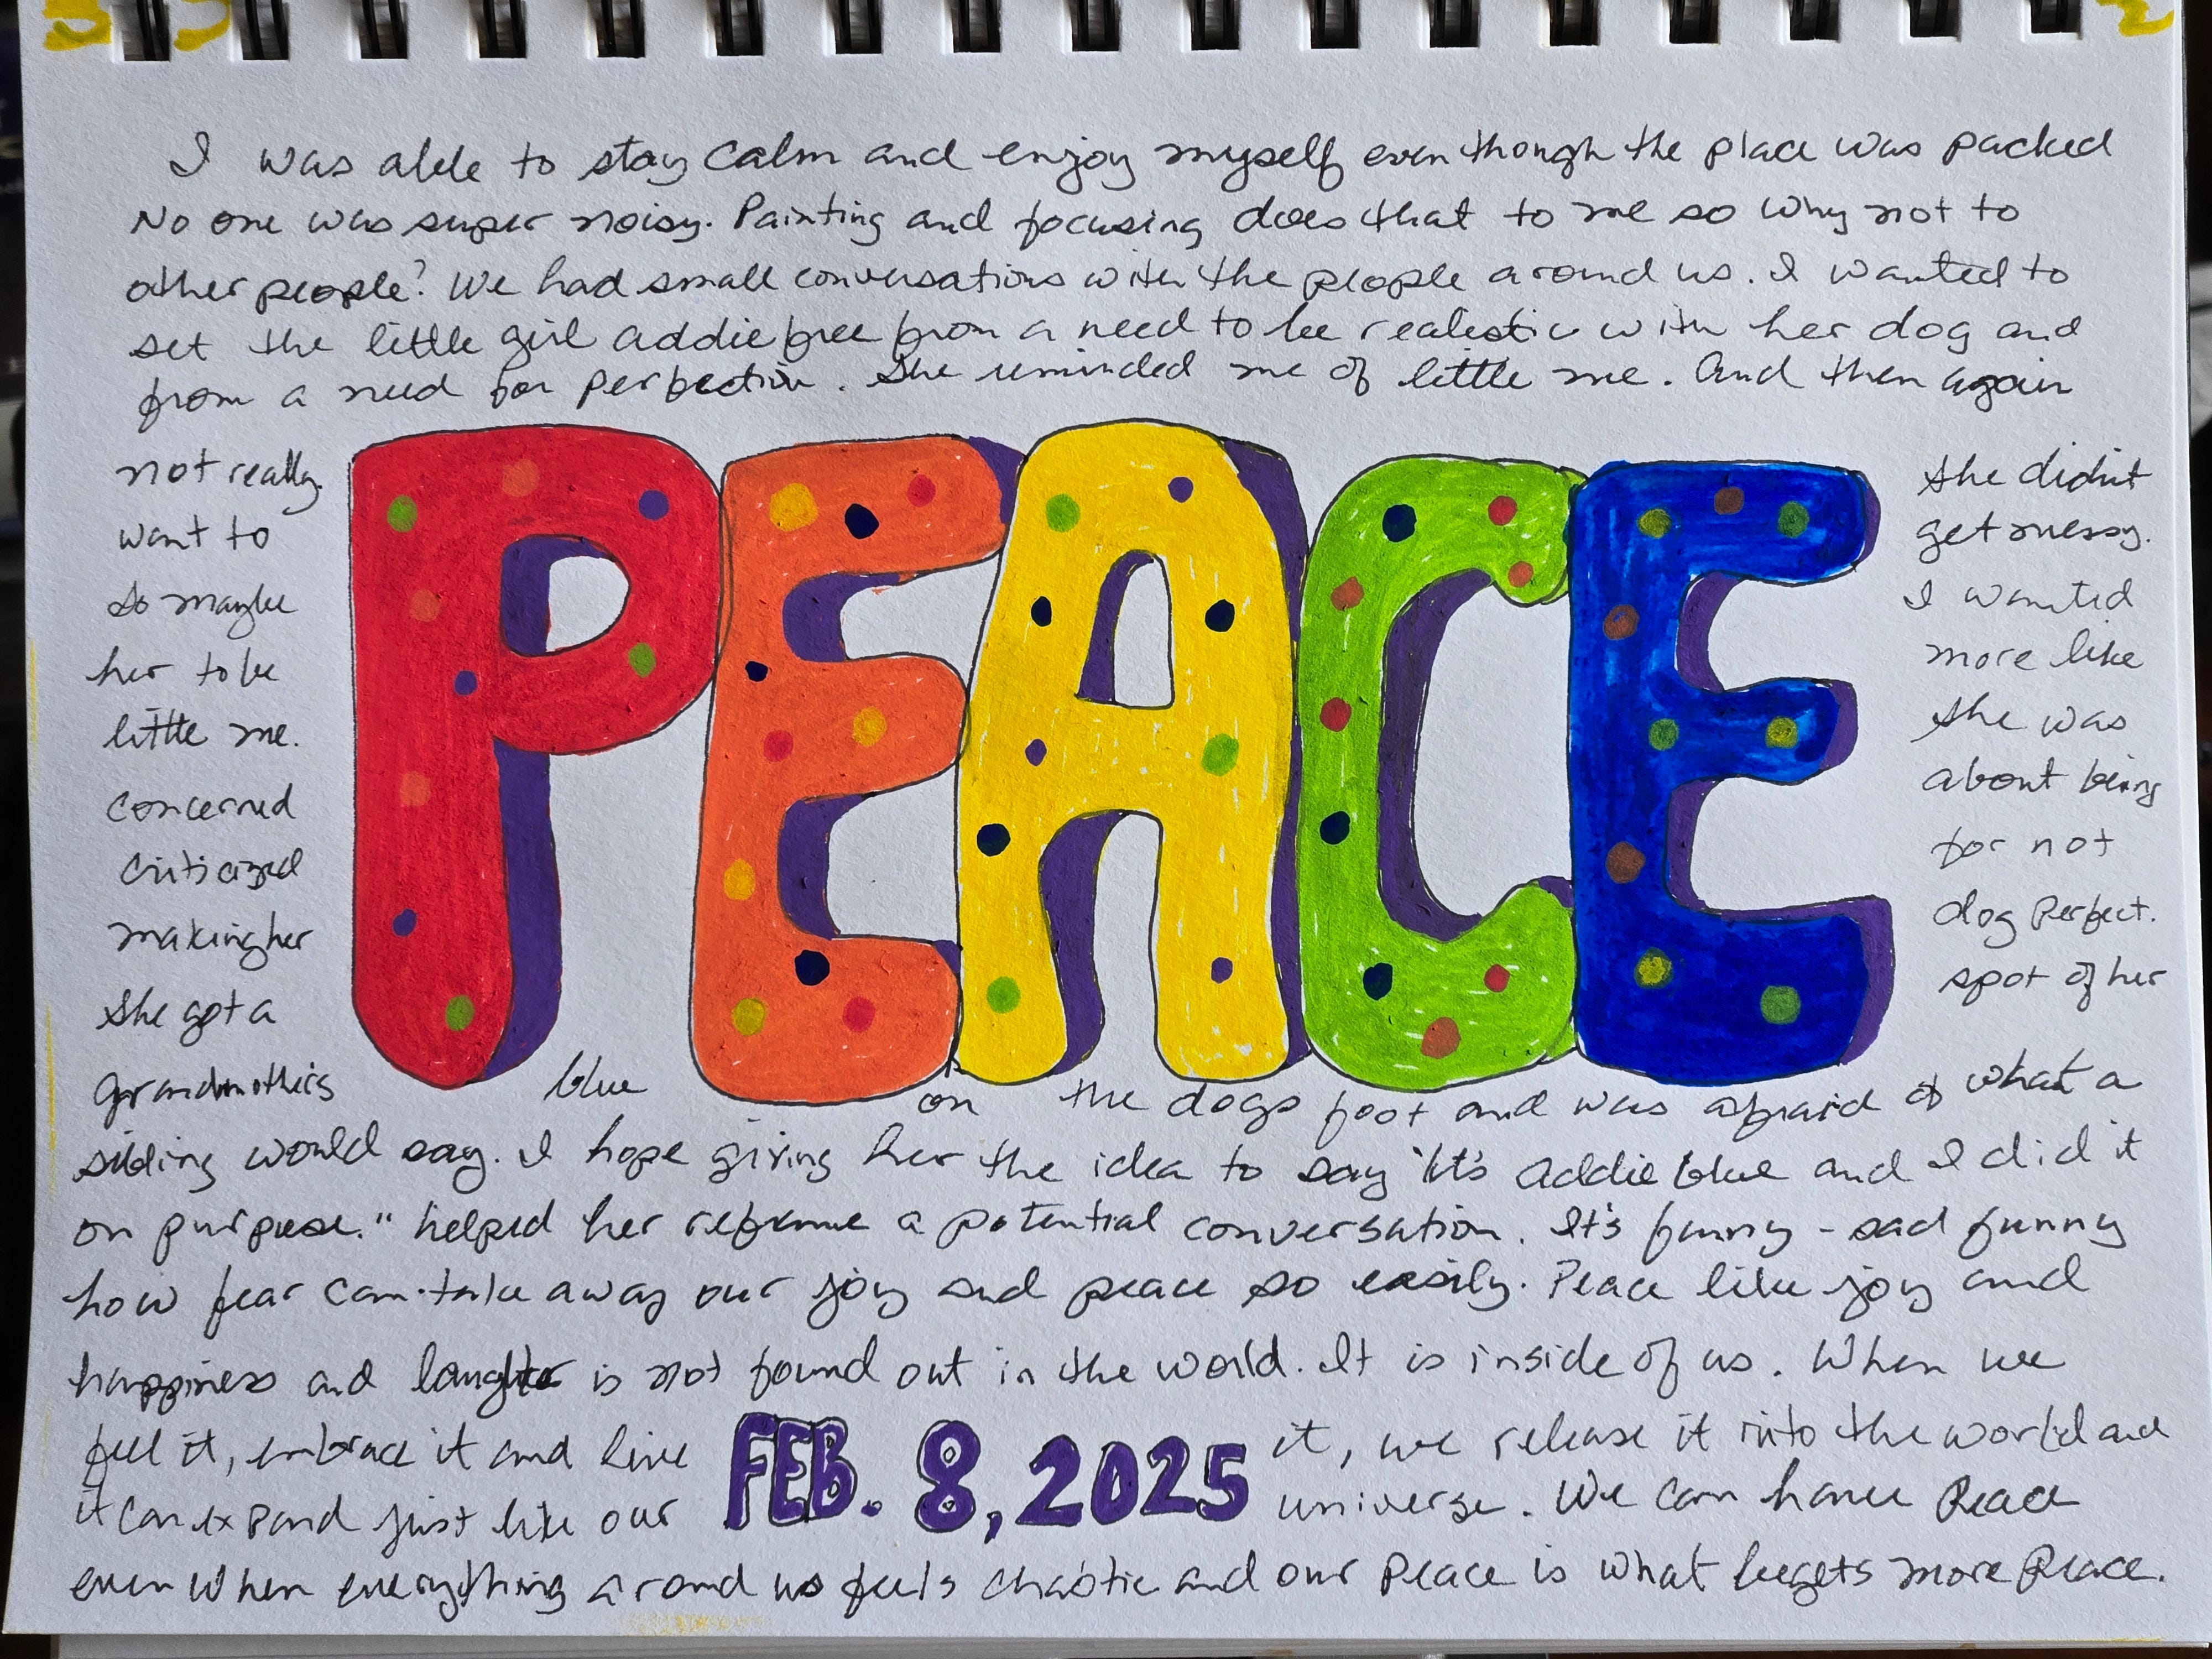 I was able to stay calm and enjoy myself even though the place was packed
No one was super noisy. Painting and focusing does that to me so why not to
other people? We had small conversations with the people around us. I wanted to
set the little girl Addie free from a need to be realistic with her dog and
from a need for perfection. She reminded me of little me. And then again
not really. she didn't
want to get messy.
So maybe I wanted
her to be more like
little me. She was
concerned about being
criticized for not
making her dog perfect.
She got a spot of her
grandmother's blue on the dogs foot and was afraid of what a
sibling would say. I hope giving her the idea to say "It's Addie blue and I did it
on purpose." helped her reframe a potential conversation. It's funny - sad funny
how fear can take away our joy and peace so easily. Peace like joy and
happiness and laughter is not found out in the world. It is inside of us. When we
feel it, embrace it and live it, we release it into the world and
it can expand just like our universe. We can have Peace
even when everything around us feels chaotic and our Peace is what begets more Peace.
PEACE
FEB. 8, 2025